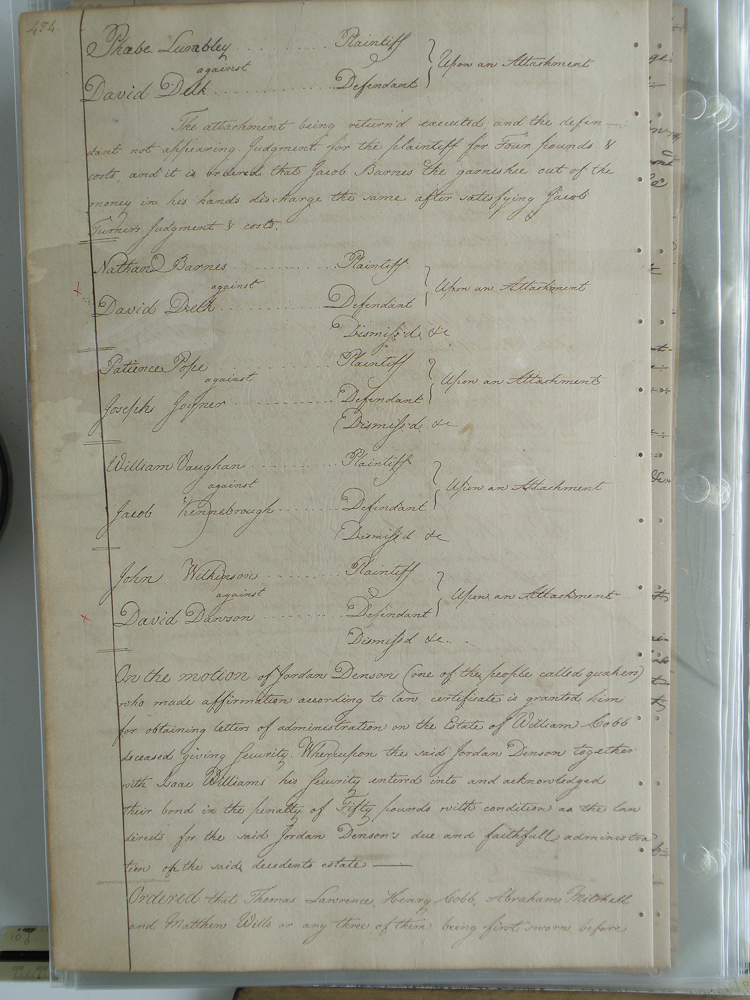 474.
Phœbe Lunabley . . . . Plaintiff
against } Upon an Attachment
David Delk . . . . Defendant
The attachment being return'd executed, and the defen-
dant not appearing. Judgment for the plaintiff for Four pounds &
costs, and it is ordered that Jacob Barnes the garnishee out of the
money in his hands discharge the same after satisfying Jacob
Turner's Judgment & costs.
Nathan Barnes . . . . Plaintiff
against } Upon an Attachment
David Delk . . . . Defendant
Dismiss'd &c
Patience Pope . . . . Plaintiff
against } Upon an Attachment
Joseph Joyner . . . . Defendant
Dismiss'd &c
William Vaughan . . . . Plaintiff
against } Upon an Attachment
Jacob Kennebrough . . . . Defendant
Dismiss'd &c
John Wilkinson . . . . Plaintiff
against } Upon an Attachment
David Dawson . . . . Defendant
Dismiss'd &c.
On the motion of Jordan Denson (one of the people called quakers)
who made affirmation according to law, certificate is granted him
for obtaining letters of administration on the Estate of William Cobb
deceased giving Security. Whereupon the said Jordan Denson together
with Isaac Williams his Security enterd into and acknowledged
their bond in the penalty of Fifty pounds with condition as the law
directs for the said Jordan Denson's due and faithfull administra
tion of the said decedents estate —
Ordered that Thomas Lawrence, Henry Cobb, Abraham Mitchell
and Matthew Wills or any three of them being first sworn before